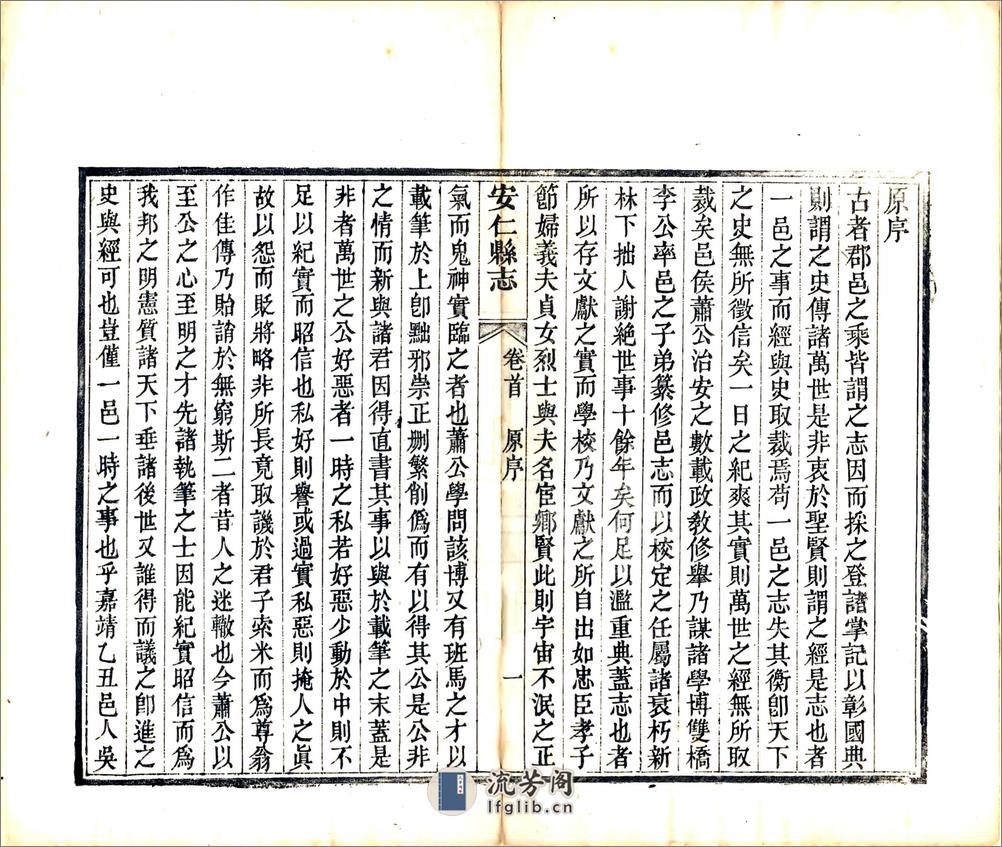 原序
古者郡邑之乘皆謂之志因而採之登諸掌記以彰國典
則謂之史傳諸萬世是非衷於聖賢則謂之經是志也者
一邑之事而經與史取裁焉苟一邑之志失其衡卽天下
之史無所徵信矣一日之紀爽其實則萬世之經無所取
裁矣邑侯蕭公治安之數載政敎修舉乃謀諸學博雙橋
李公率邑之子弟纂修邑志而以校定之任屬諸衰朽新
林下拙人謝絕世事十餘年矣何足以濫重典蓋志也者
所以存文獻之實而學校乃文獻之所自出如忠臣孝子
節婦義夫貞女烈士與夫名宦鄉賢此則宇宙不泯之正
安仁縣志 卷首 原序 一
氣而鬼神實臨之者也蕭公學問該博又有班馬之才以
載筆於上卽黜邪崇正刪繁削僞而有以得其公是公非
之情而新與諸君因得直書其事以與於載筆之末蓋是
非者萬世之公好惡者一時之私若好惡少動於中則不
足以紀實而昭信也私好則譽或過實私惡則掩人之眞
故以怨而貶將略非所長竟取譏於君子索米而爲尊翁
作佳傳乃貽誚於無窮斯二者昔人之迷轍也今蕭公以
至公之心至明之才先諸執筆之士因能紀實昭信而爲
我邦之明憲質諸天下垂諸後世又誰得而議之卽進之
史與經可也豈僅一邑一時之事也乎嘉靖乙丑邑人吳
流芳阁
lfglib.cn